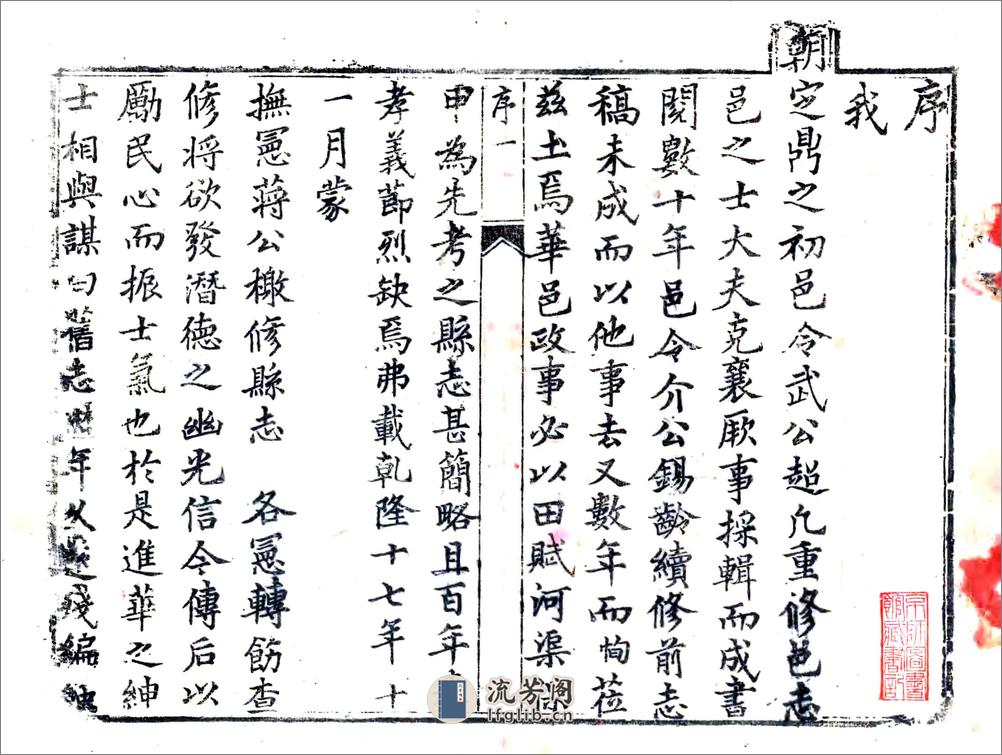 序
我
朝定鼎之初邑令武公超凡重修邑志
邑之士大夫克襄厥事採輯而成書
閱數十年邑令介公錫齡續修前志
稿未成而以他事去又數年而恂莅
茲土焉華邑政事必以田賦河渠
序 一
申為先考之縣志甚簡略且百年
孝義節烈缺焉弗載乾隆十七年十
一月蒙
撫憲蔣公檄修縣志 各憲轉飭查
修將欲發潛德之幽光信今傳后以
勵民心而振士氣也於是進華之紳
士相與謀曰舊志 年久 殘編
流芳阁
lfglib.cn